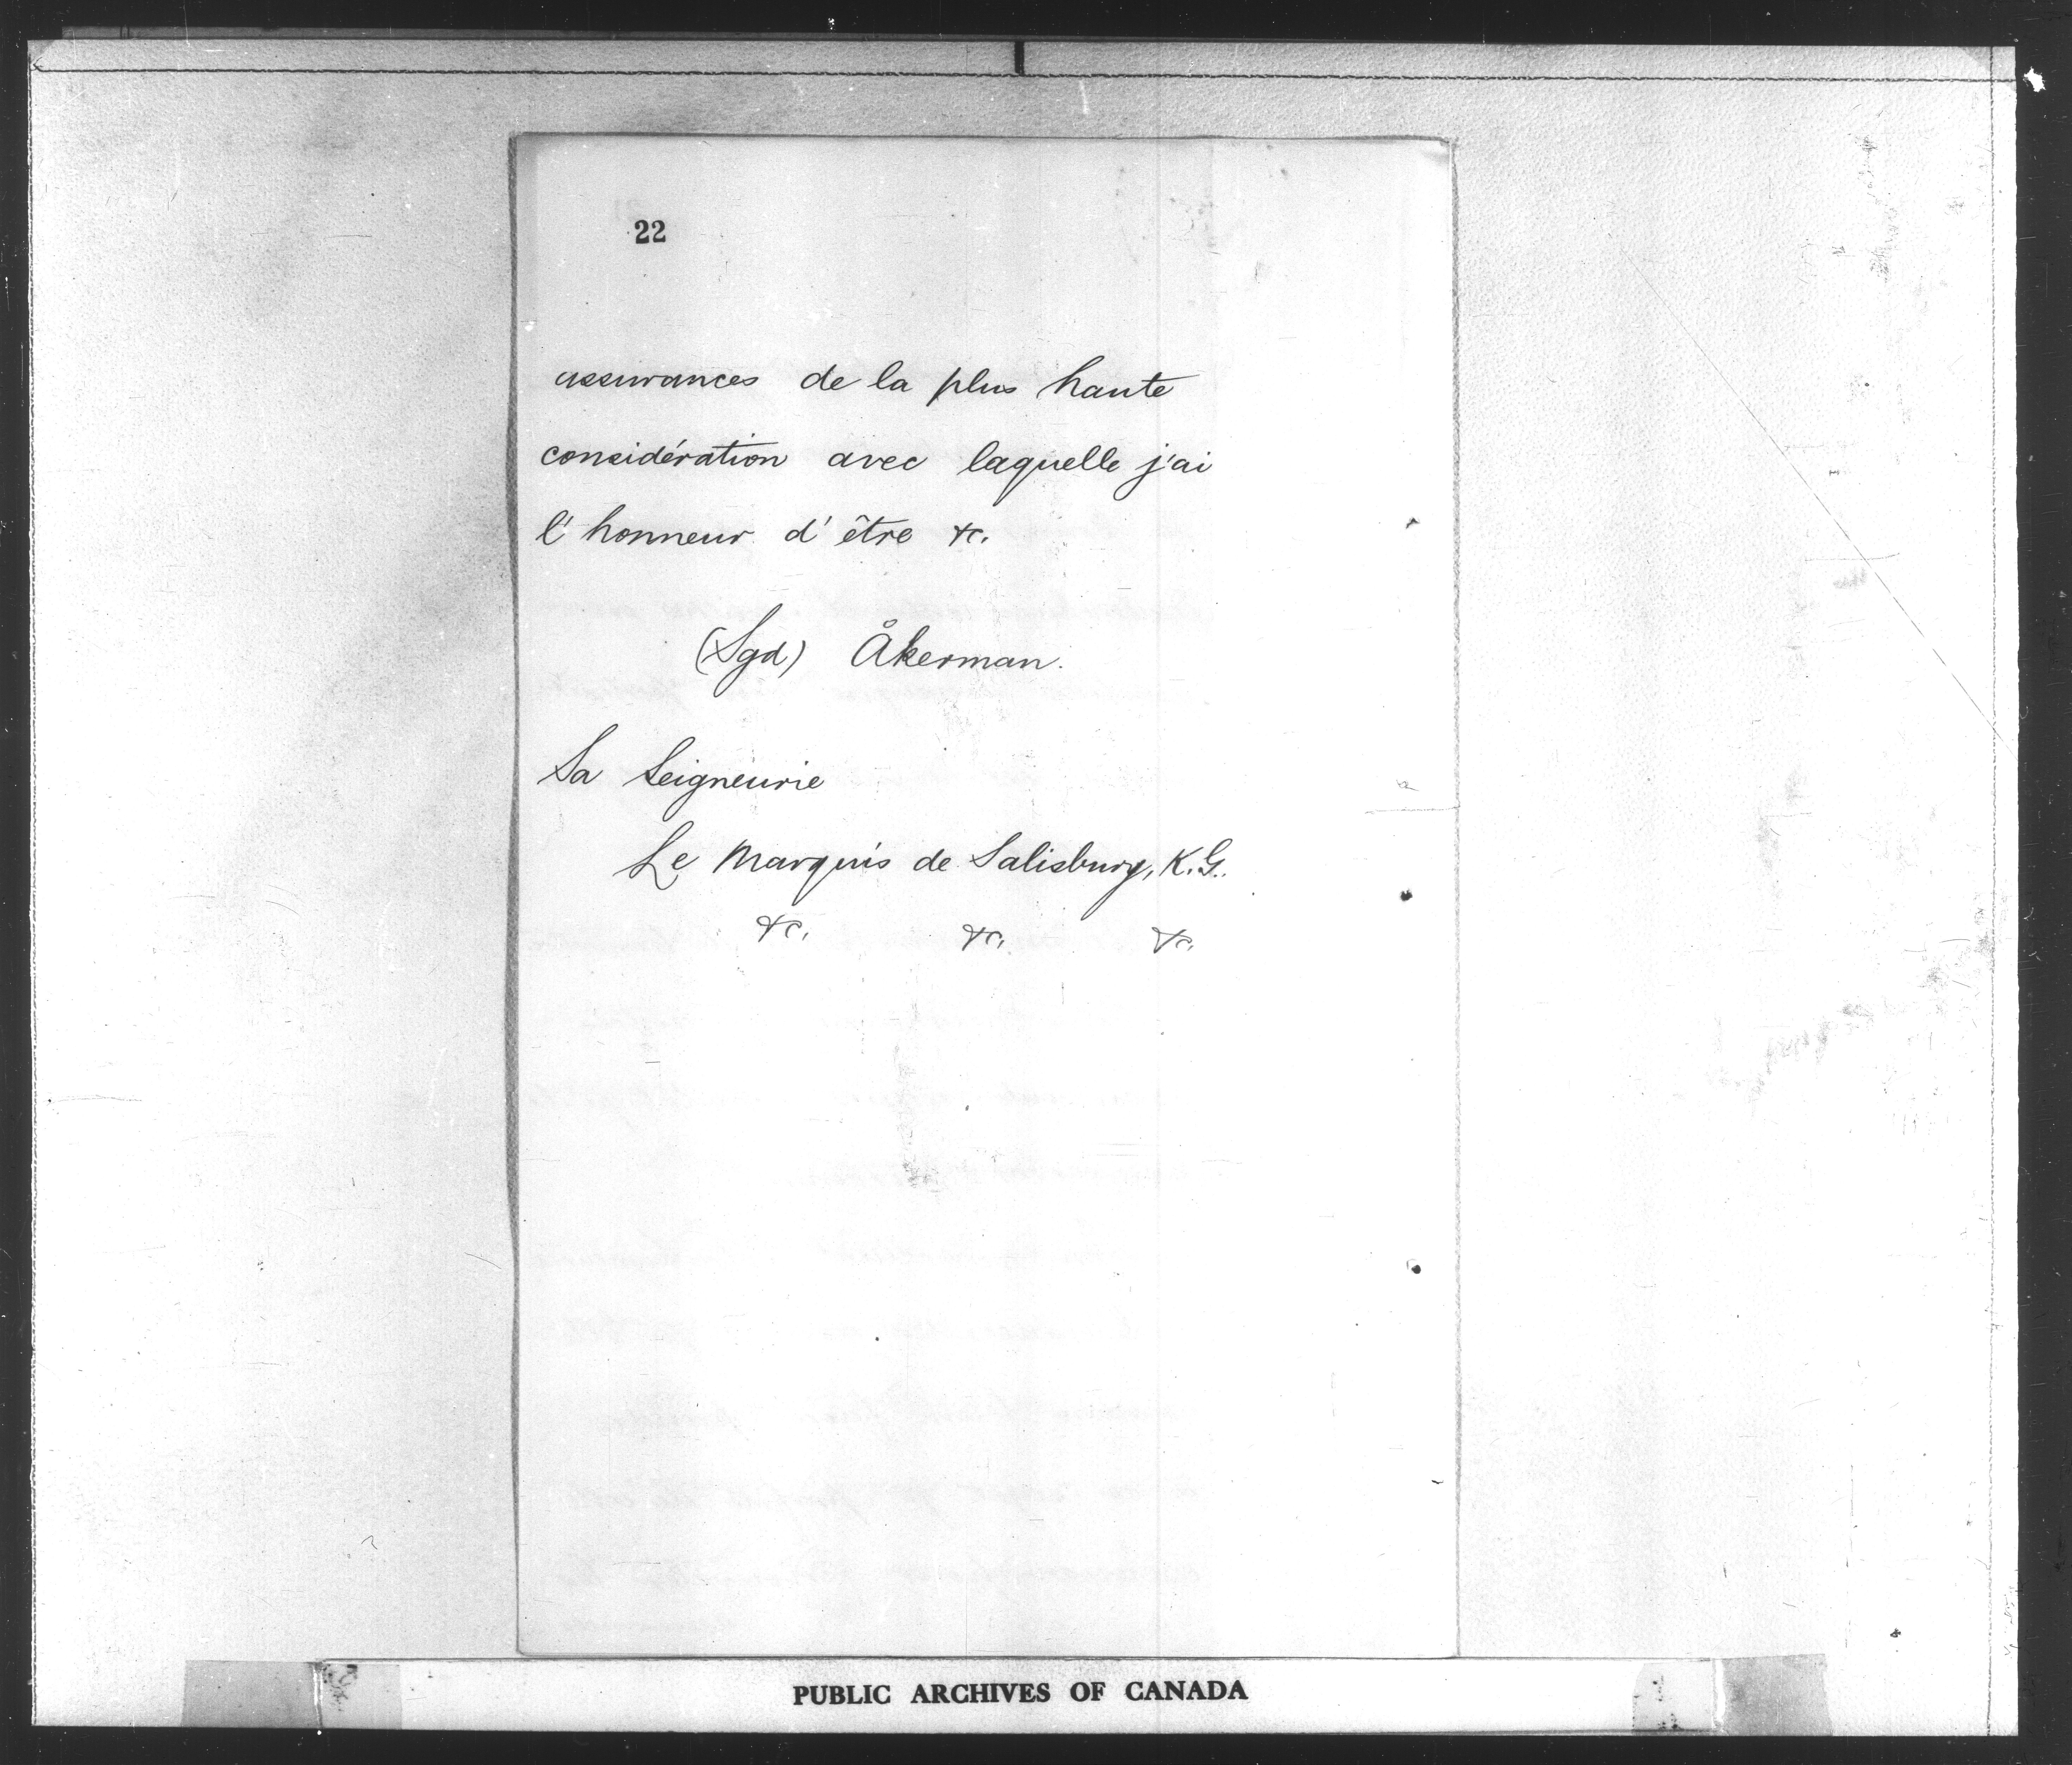 22
assurances de la plus haute
considération avec laquelle j'ai
l'honneur d'être &c.
(Sgd) Åkerman.
Sa Seigneurie
Le Marquis de Salisbury, K.G.
&c. &c. &c.
PUBLIC ARCHIVES OF CANADA